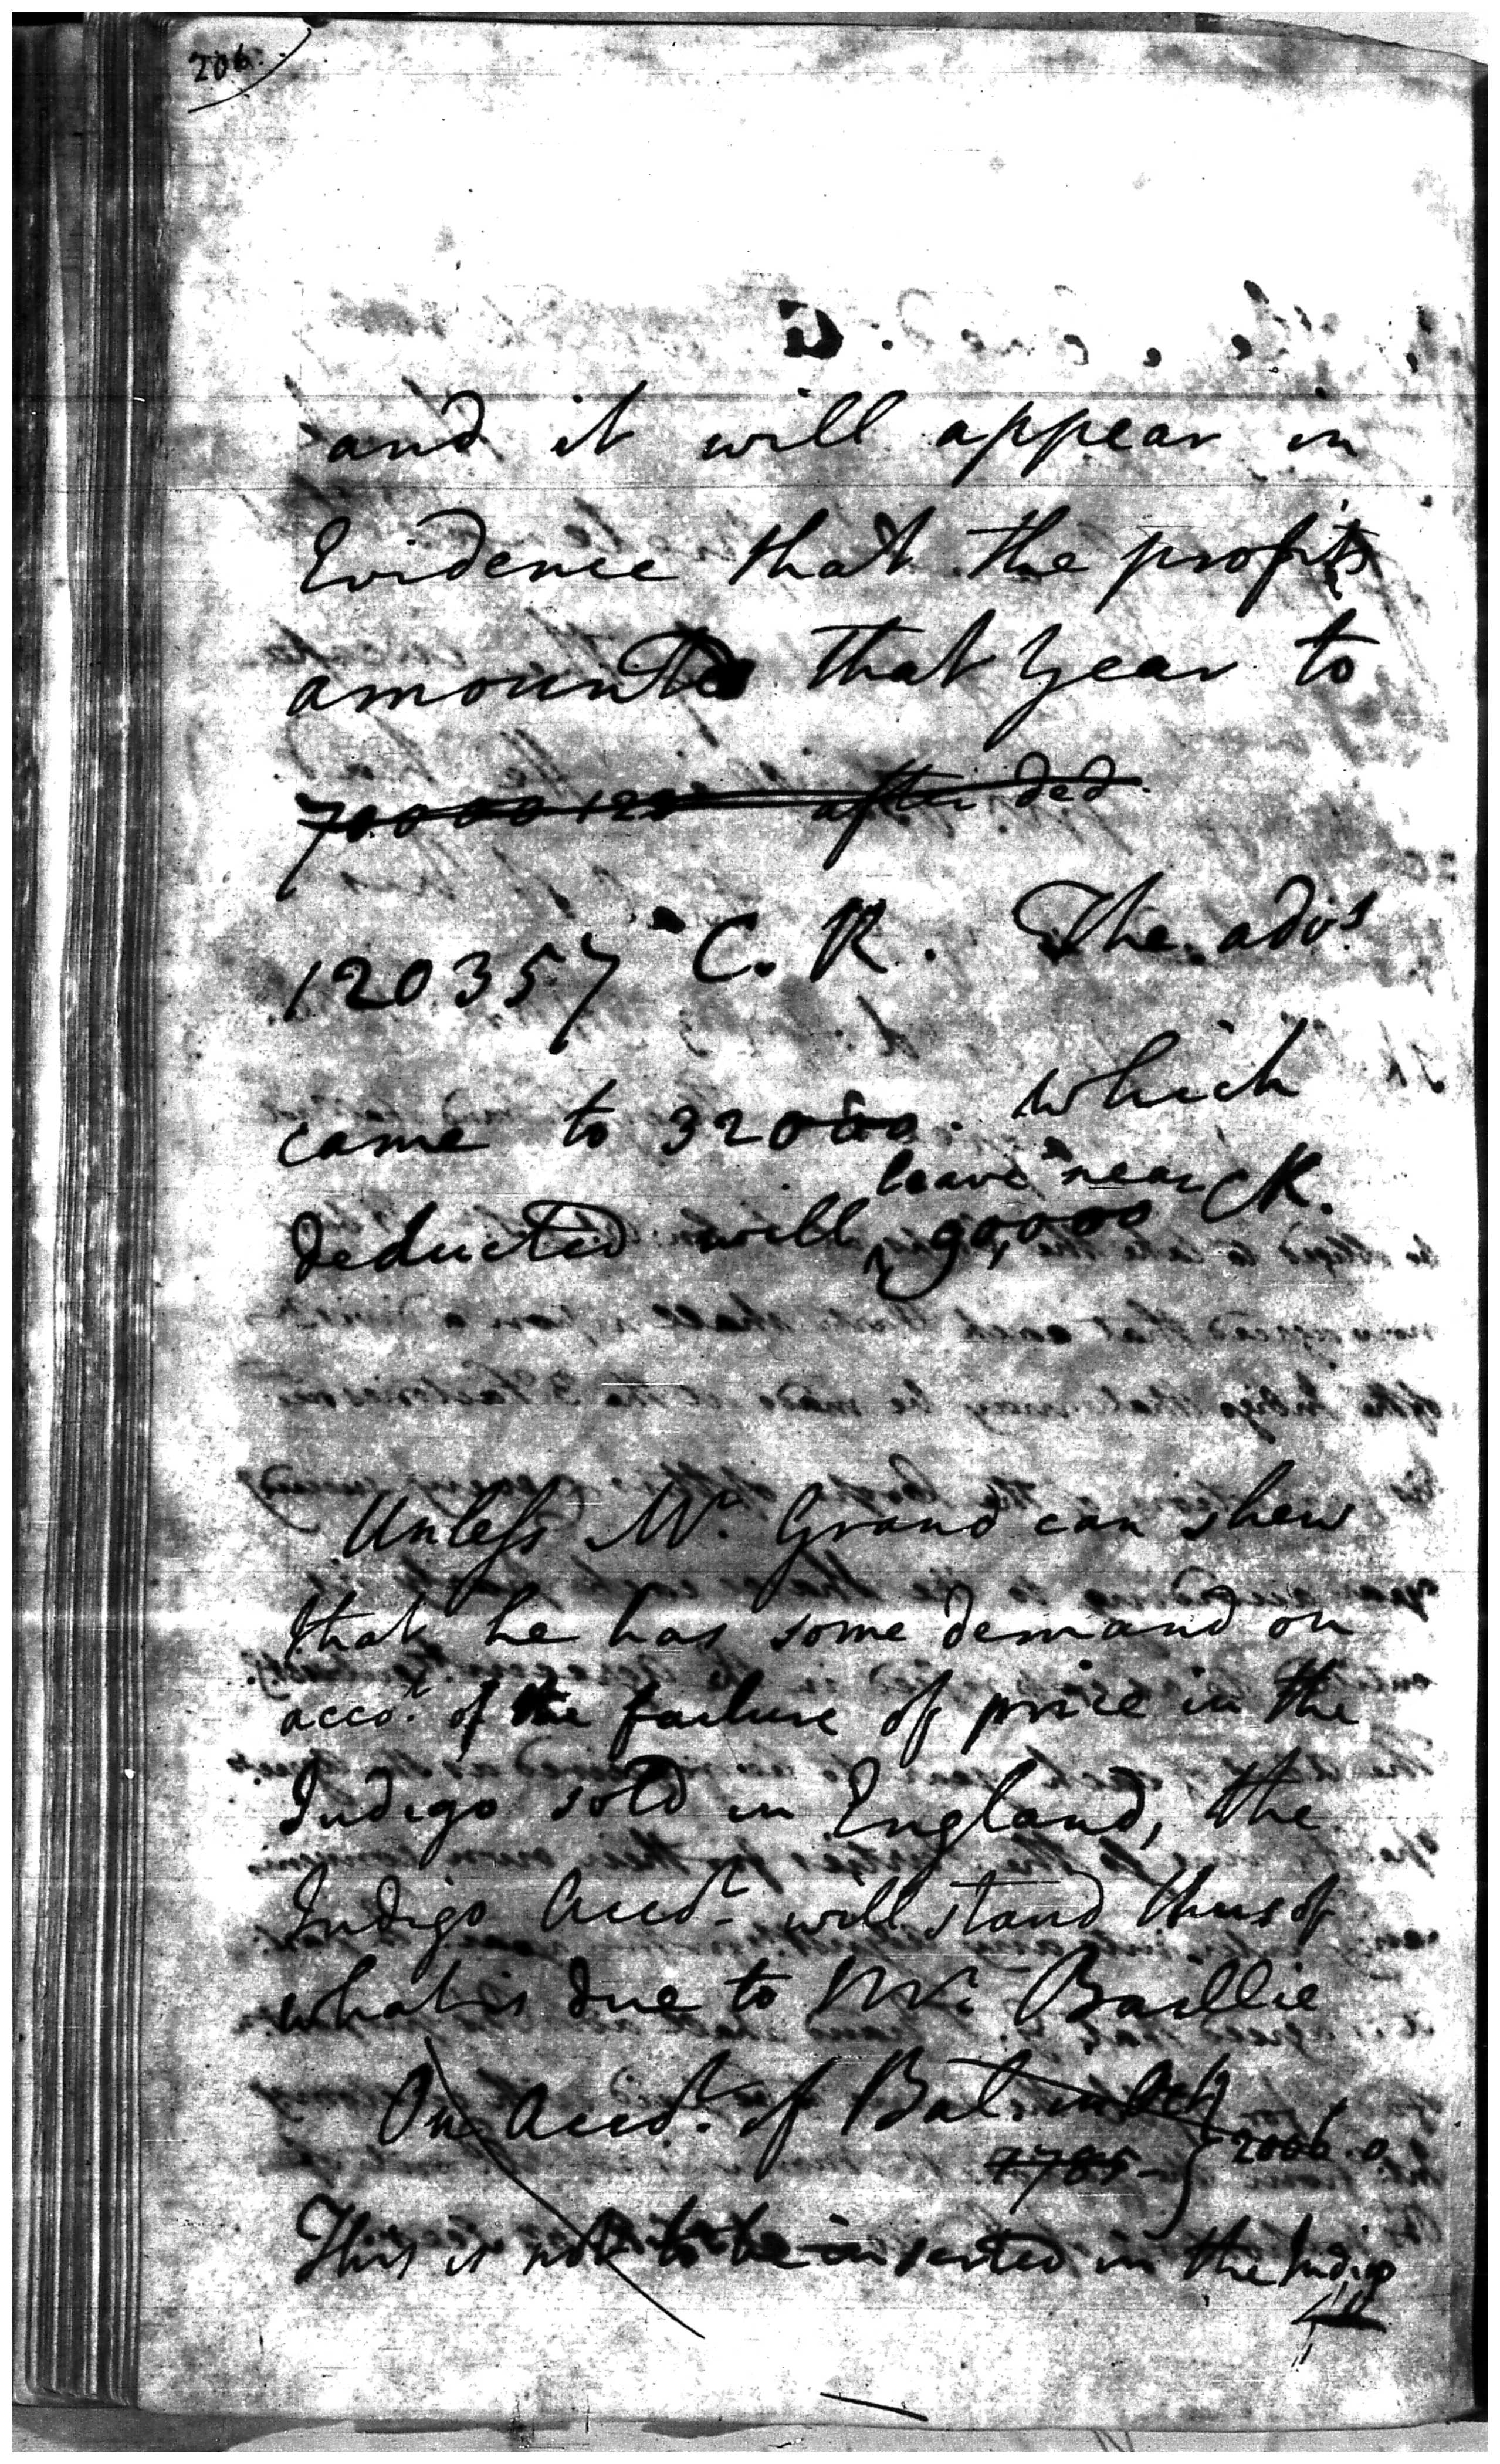 206.
and it will appear in
Evidence that the profits
amounted that Year to
70000 after ded.
120357 C. R. The advs
came to 32000. which
leave near
deducted will 90,000 CR.
Unless Mr. Grand can shew
that he has some demand on
acco.t of the failure of price in the
Indigo sold in England, the
Indigo Acco.t will stand thus of
what is due to Mr. Baillie
On Acco.t of Bal.
1785 2006.0
This is not to be inserted in the Indigo